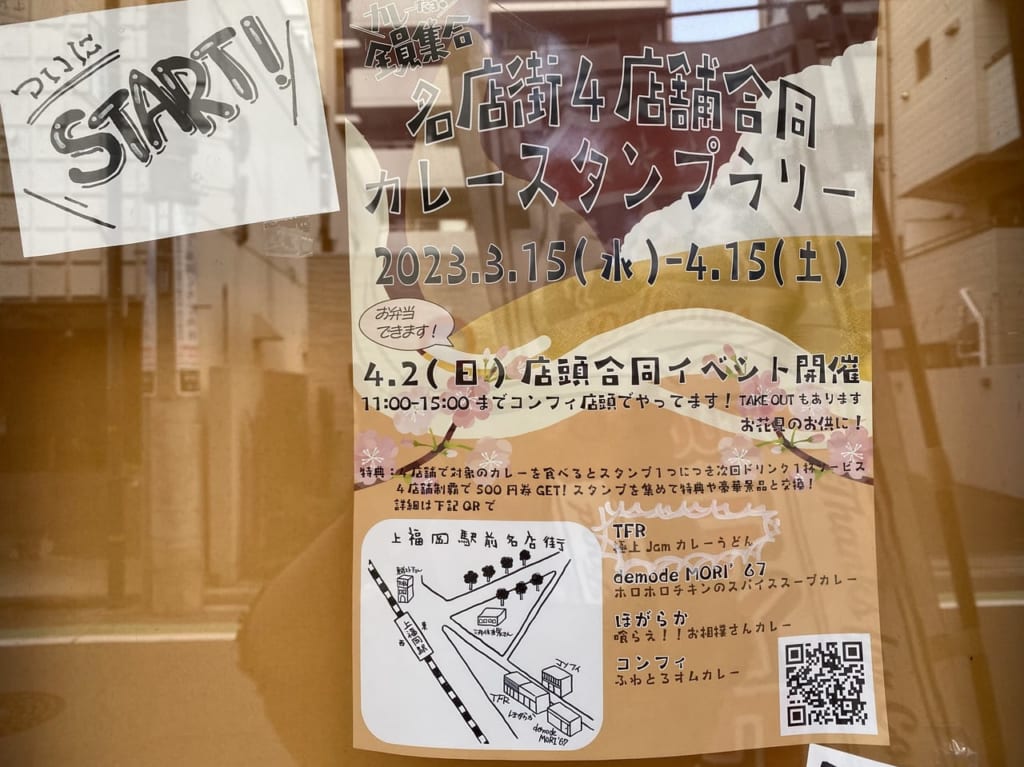 ついに
START!
カレー店
全員集合
名店街4店舗合同
カレースタンプラリー
2023.3.15(水)-4.15(土)
お弁当
できます!
4.2(日)店頭合同イベント開催
11:00-15:00 までコンフィ店頭でやってます! TAKE OUT もあります
お花見のお供に!
特典:4店舗で対象のカレーを食べるとスタンプ1つにつき次回ドリンク1杯サービス
4店舗制覇で500円券GET! スタンプを集めて特典や豪華景品と交換!
詳細は下記QRで
上福岡駅前名店街
東
西
上福岡駅
コンフィ
TFR
ほがらか
demode
MORI'67
TFR
極上Jamカレーうどん
demode MORI' 67
ホロホロチキンのスパイススープカレー
ほがらか
喰らえ!!お相撲さんカレー
コンフィ
ふわとろオムカレー